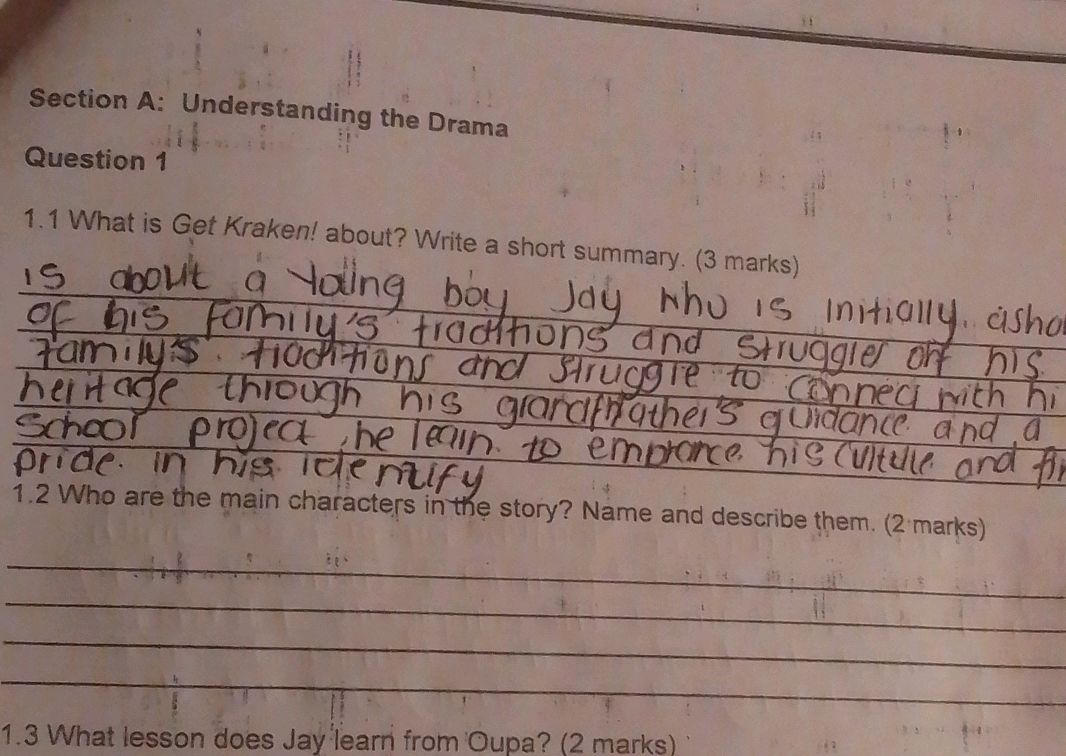 Section A: Understanding the Drama
Question 1
1.1 What is Get Kraken! about? Write a short summary. (3 marks)
is about a Young boy Jay who is initially.
of his family's traditions and struggles off his
family's. traditions and struggle to connect with
heritage through his grandfather's guidance and a
School project, he learn. to embrance his culture and
pride. in his identify
1.2 Who are the main characters in the story? Name and describe them. (2 marks)
1.3 What lesson does Jay learn from Oupa? (2 marks)